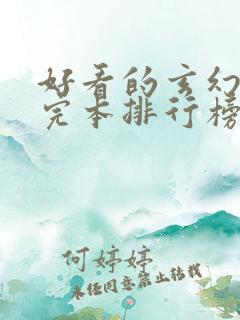 好看的玄幻
完本排行榜
何婷婷
未经同意禁止转载